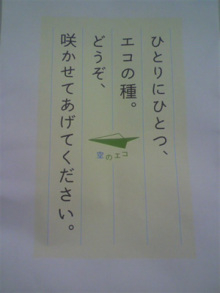 ひとりにひとつ、
エコの種。
どうぞ、
咲かせてあげてください。
愛のエコ